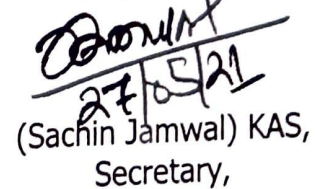 27/05/21
(Sachin Jamwal) KAS,
Secretary,